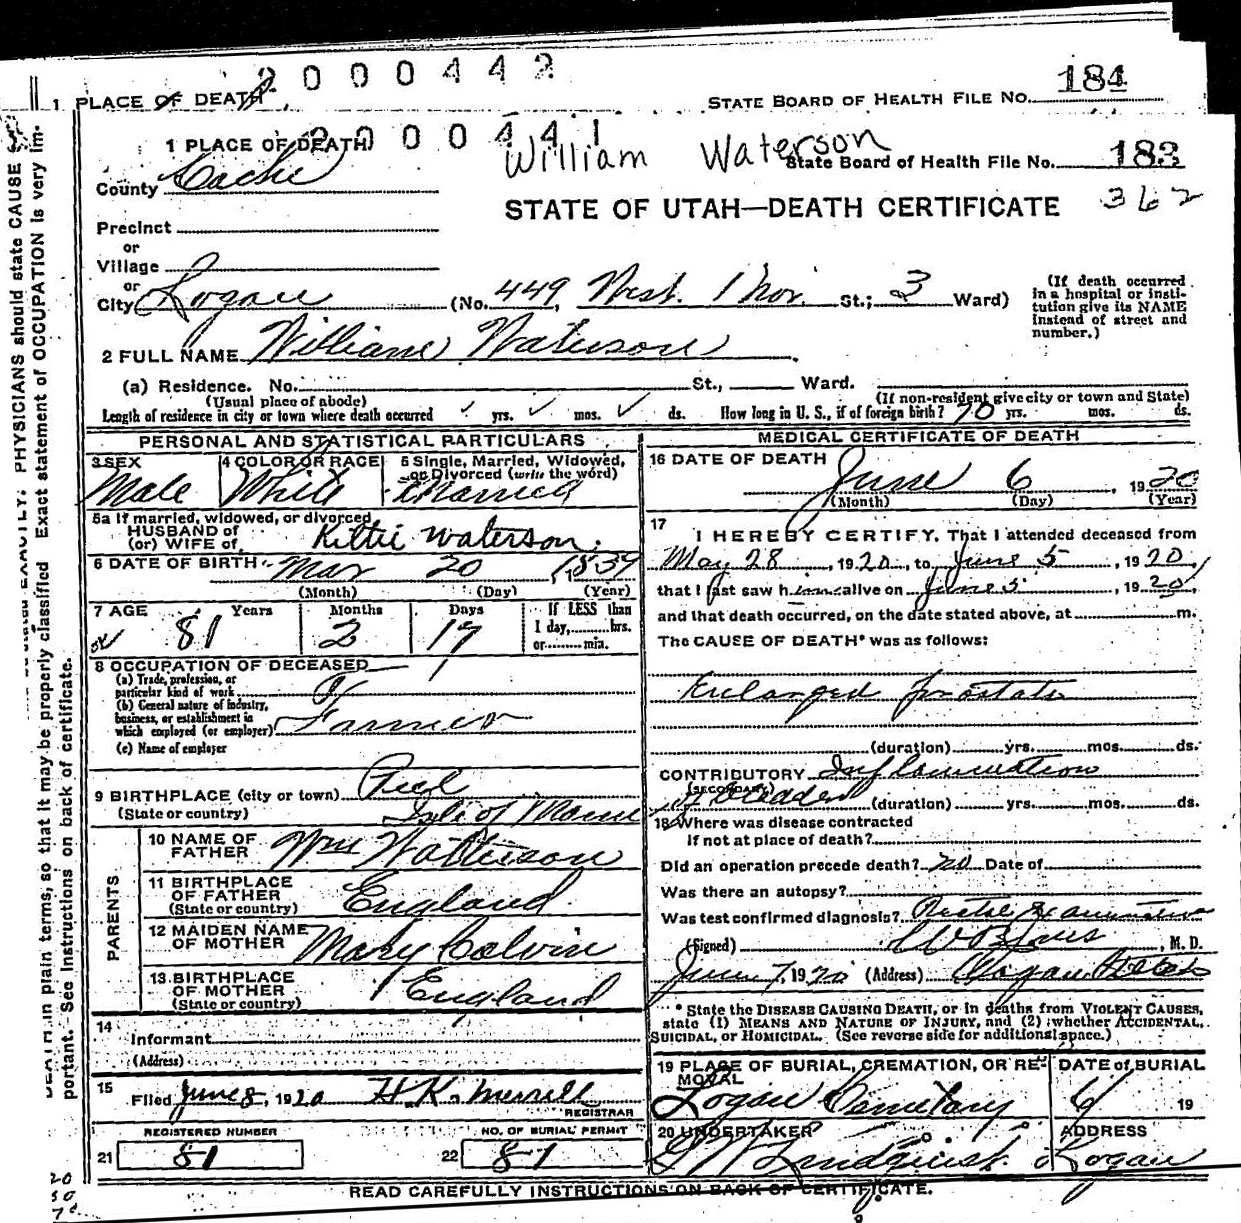 2000442
184
1 PLACE OF DEATH
STATE BOARD OF HEALTH FILE NO.
2000441
1 PLACE OF DEATH
William Waterson
State Board of Health File No. 183
County Cache
362
STATE OF UTAH—DEATH CERTIFICATE
Precinct
or
Village
or
City Logan (No. 449 West 1 Nor. St.; 3 Ward)
(If death occurred in a hospital or institution give its NAME instead of street and number.)
2 FULL NAME William Waterson
(a) Residence. No. St., Ward.
(Usual place of abode) (If non-resident give city or town and State)
Length of residence in city or town where death occurred yrs. mos. ds. How long in U. S., if of foreign birth? 70 yrs. mos. ds.
PERSONAL AND STATISTICAL PARTICULARS
3 SEX 4 COLOR OR RACE 5 Single, Married, Widowed, or Divorced (write the word)
Male White Married
5a If married, widowed, or divorced
HUSBAND of
(or) WIFE of Kittie Waterson
6 DATE OF BIRTH Mar 20 1839
(Month) (Day) (Year)
7 AGE Years Months Days If LESS than
81 2 17 1 day, hrs.
or min.
8 OCCUPATION OF DECEASED
(a) Trade, profession, or
particular kind of work
(b) General nature of industry,
business, or establishment in
which employed (or employer) Farmer
(c) Name of employer
9 BIRTHPLACE (city or town) Peel
(State or country) Isle of Mann
PARENTS
10 NAME OF FATHER Wm Watterson
11 BIRTHPLACE OF FATHER England
(State or country)
12 MAIDEN NAME OF MOTHER Mary Colvin
13 BIRTHPLACE OF MOTHER England
(State or country)
14
Informant
(Address)
15
Filed June 8, 1920 H.K. Merrill
REGISTRAR
REGISTERED NUMBER NO. OF BURIAL PERMIT
21 81 22 81
MEDICAL CERTIFICATE OF DEATH
16 DATE OF DEATH
June 6, 1920
(Month) (Day) (Year)
17
I HEREBY CERTIFY, That I attended deceased from
May 28, 1920, to June 5, 1920,
that I last saw him alive on June 5, 1920,
and that death occurred, on the date stated above, at m.
The CAUSE OF DEATH* was as follows:
Enlarged prostate
(duration) yrs. mos. ds.
CONTRIBUTORY Inflammation
(SECONDARY)
of bladder (duration) yrs. mos. ds.
18 Where was disease contracted
If not at place of death?
Did an operation precede death? no Date of
Was there an autopsy?
Was test confirmed diagnosis? Rectal Examination
(Signed) , M. D.
June 7, 1920 (Address) Logan Utah
* State the DISEASE CAUSING DEATH, or in deaths from VIOLENT CAUSES,
state (1) MEANS AND NATURE OF INJURY, and (2) whether ACCIDENTAL,
SUICIDAL, or HOMICIDAL. (See reverse side for additional space.)
19 PLACE OF BURIAL, CREMATION, OR RE- DATE of BURIAL
MOVAL
Logan Cemetary 19
20 UNDERTAKER ADDRESS
Lindquist Logan
READ CAREFULLY INSTRUCTIONS ON BACK OF CERTIFICATE.
PHYSICIANS should state CAUSE
Exact statement of OCCUPATION is very im-
DEATH in plain terms, so that it may be properly classified
portant. See Instructions on back of certificate.